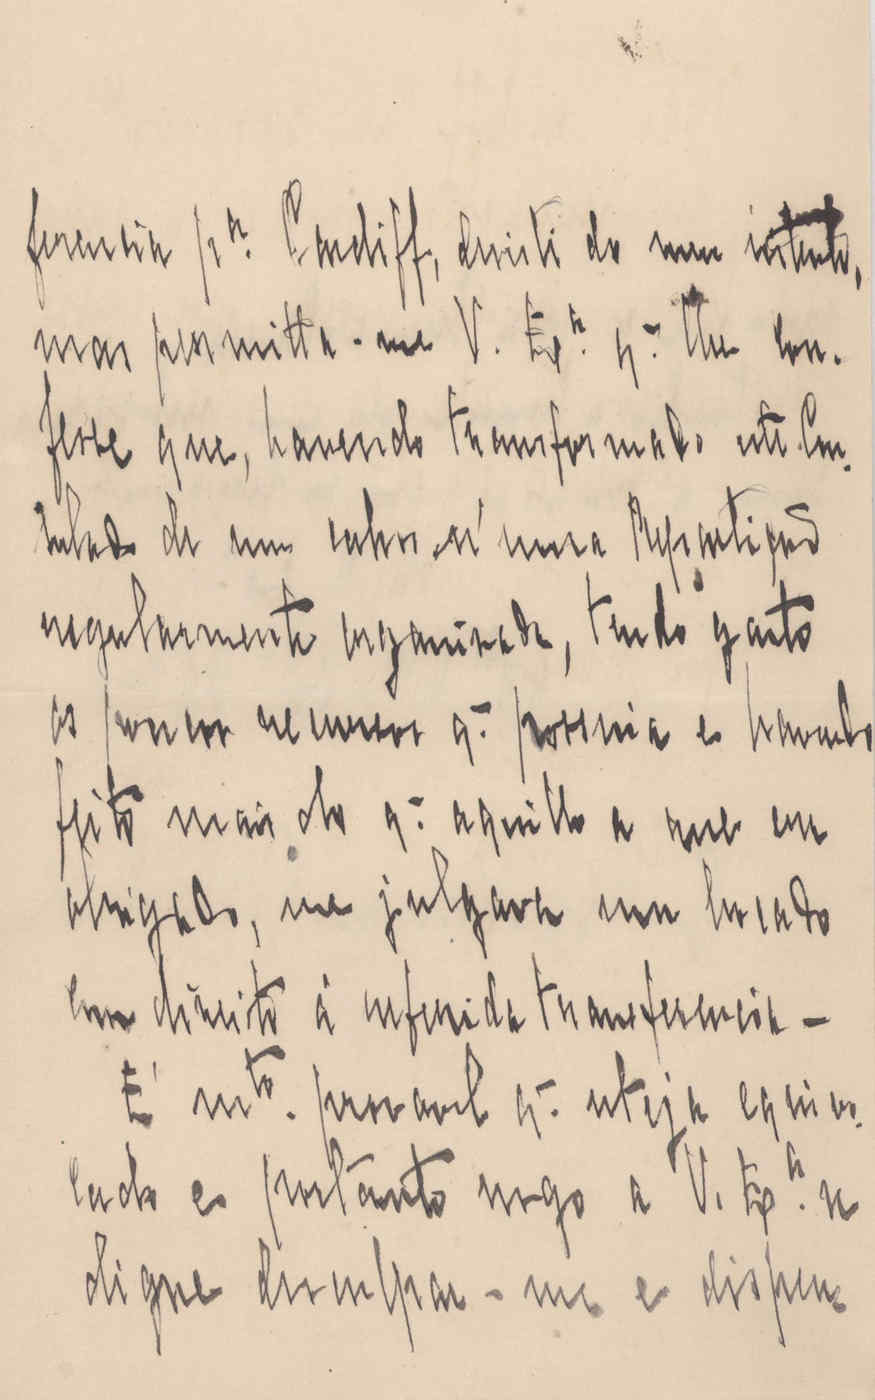 ferencia pª. Cardiff, desisti do meu intento,
mas permitta-me V. Exª. q. lhe con-
fesse que, havendo transformado este Con-
sulado de um cahos n'uma Repartição
regularmente organisada, tendo gasto
os poucos recursos q. possuia e havendo
feito mais do q. aquillo a que era
obrigado, me julgava um bocado
com direito á referida transferencia –
É mto. provavel q. esteja equivo-
cado e portanto rogo a V. Exª. se
digne desculpar-me e dispen